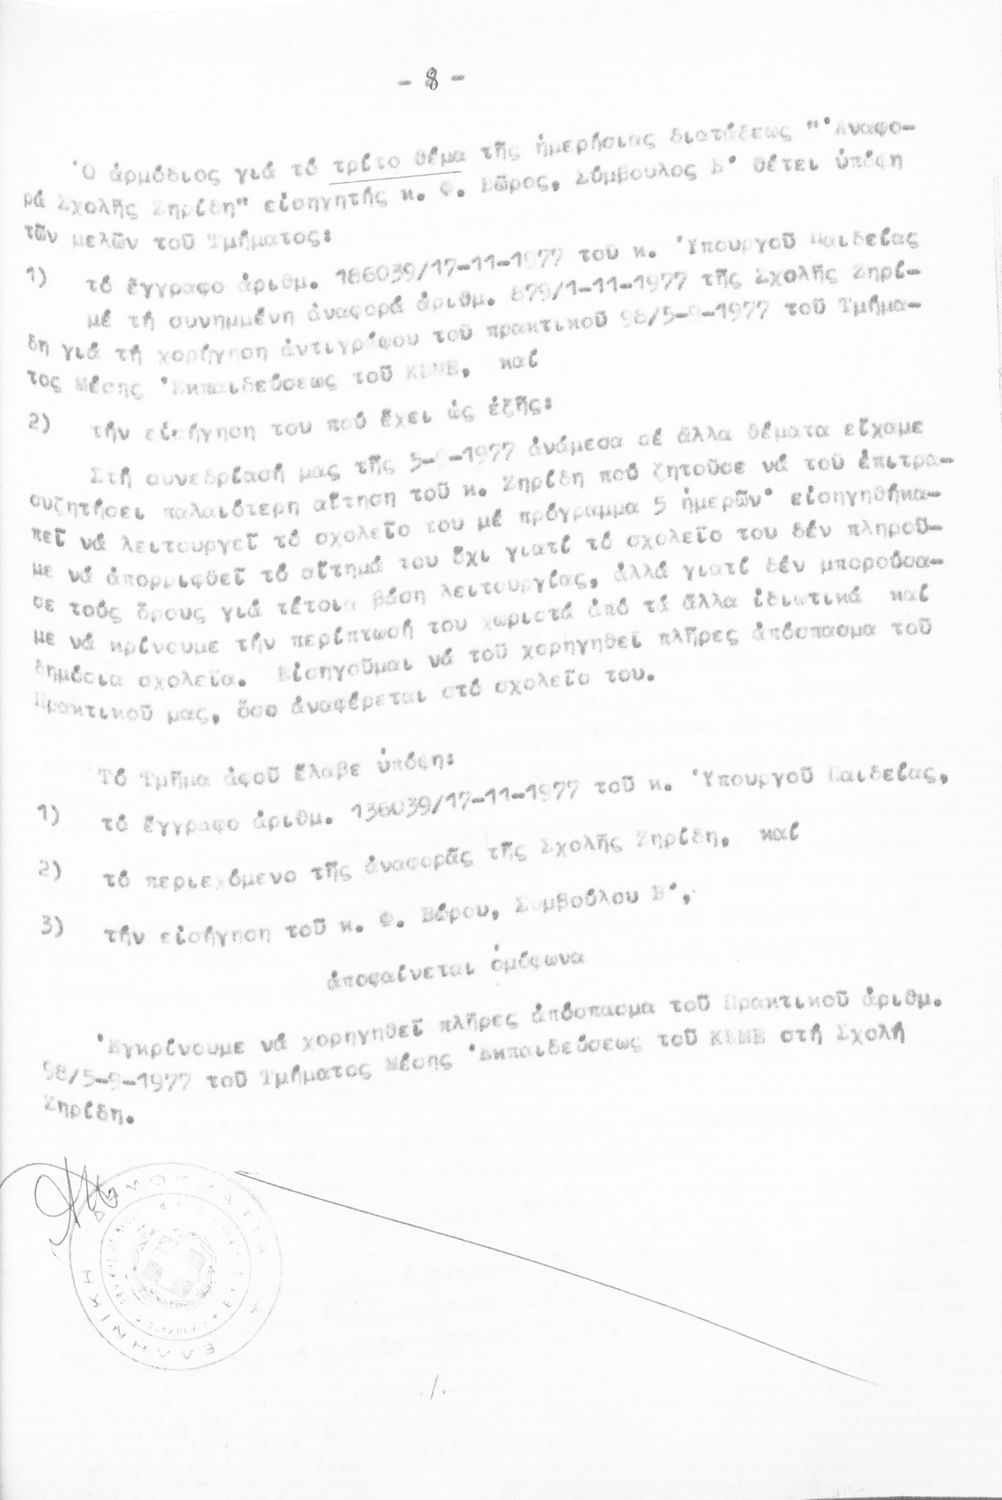 - 8 -
Ὁ ἁρμόδιος γιά τό τρίτο θέμα τῆς ἡμερήσιας διατάξεως "Ἀναφο-
ρά Σχολῆς Ζηρίδη" εἰσηγητής κ. Φ. Βῶρος, Σύμβουλος Β' θέτει ὑπόψη
τῶν μελῶν τοῦ Τμήματος:
1) τό ἔγγραφο ἀριθμ. 186039/17-11-1977 τοῦ κ. Ὑπουργοῦ Παιδείας
μέ τή συνημμένη ἀναφορά ἀριθμ. 879/1-11-1977 τῆς Σχολῆς Ζηρί-
δη γιά τή χορήγηση ἀντιγράφου τοῦ πρακτικοῦ 98/5-9-1977 τοῦ Τμήμα-
τος Μέσης Ἐκπαιδεύσεως τοῦ ΚΕΜΕ, καί
2) τήν εἰσήγηση του πού ἔχει ὡς ἑξῆς:
Στή συνεδρίασή μας τῆς 5-9-1977 ἀνάμεσα σέ ἄλλα θέματα εἴχαμε
συζητήσει παλαιότερη αἴτηση τοῦ κ. Ζηρίδη πού ζητοῦσε νά τοῦ ἐπιτρα-
πεῖ νά λειτουργεῖ τό σχολεῖο του μέ πρόγραμμα 5 ἡμερῶν· εἰσηγηθήκα-
με νά ἀπορριφθεῖ τό αἴτημά του ὄχι γιατί τό σχολεῖο του δέν πληροῦ-
σε τούς ὅρους γιά τέτοια βάση λειτουργίας, ἀλλά γιατί δέν μπορούσα-
με νά κρίνουμε τήν περίπτωσή του χωριστά ἀπό τά ἄλλα ἰδιωτικά καί
δημόσια σχολεῖα. Εἰσηγοῦμαι νά τοῦ χορηγηθεῖ πλῆρες ἀπόσπασμα τοῦ
Πρακτικοῦ μας, ὅσο ἀναφέρεται στό σχολεῖο του.
Τό Τμῆμα ἀφοῦ ἔλαβε ὑπόψη:
1) τό ἔγγραφο ἀριθμ. 136039/17-11-1977 τοῦ κ. Ὑπουργοῦ Παιδείας,
2) τό περιεχόμενο τῆς ἀναφορᾶς τῆς Σχολῆς Ζηρίδη, καί
3) τήν εἰσήγηση τοῦ κ. Φ. Βώρου, Συμβούλου Β',
ἀποφαίνεται ὁμόφωνα
Ἐγκρίνουμε νά χορηγηθεῖ πλῆρες ἀπόσπασμα τοῦ Πρακτικοῦ ἀριθμ.
98/5-9-1977 τοῦ Τμήματος Μέσης Ἐκπαιδεύσεως τοῦ ΚΕΜΕ στή Σχολή
Ζηρίδη.
ΕΛΛΗΝΙΚΗ ΔΗΜΟΚΡΑΤΙΑ
./.